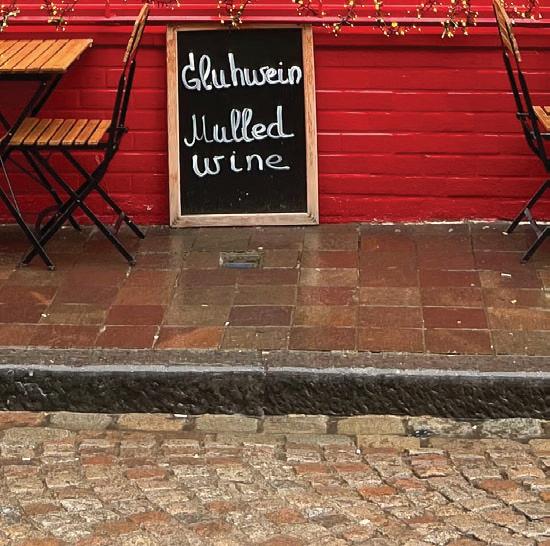 Gluhwein
Mulled
wine